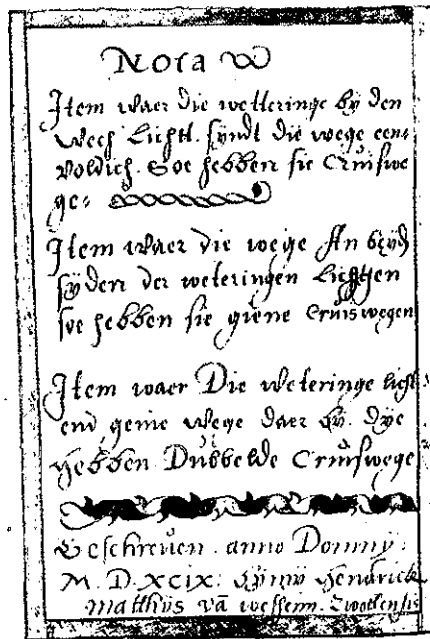 Nota
Item waer die wetteringe by den
Wech Lichtt. syndt die wege een,
voldich. Soe hebben sie Cruiswe
ge,
Item waer die weige An beyd
syden der weteringen Lichtten
soe hebben sie giene Cruiswegen
Item waer Die weteringe licht
end geine wege daer by. dye
Hebben Dubbelde Cruiswege
Geschreven. anno Domny.
M. D. XCIX. Hendrick
Matthys vā wessenn. Zwollensis